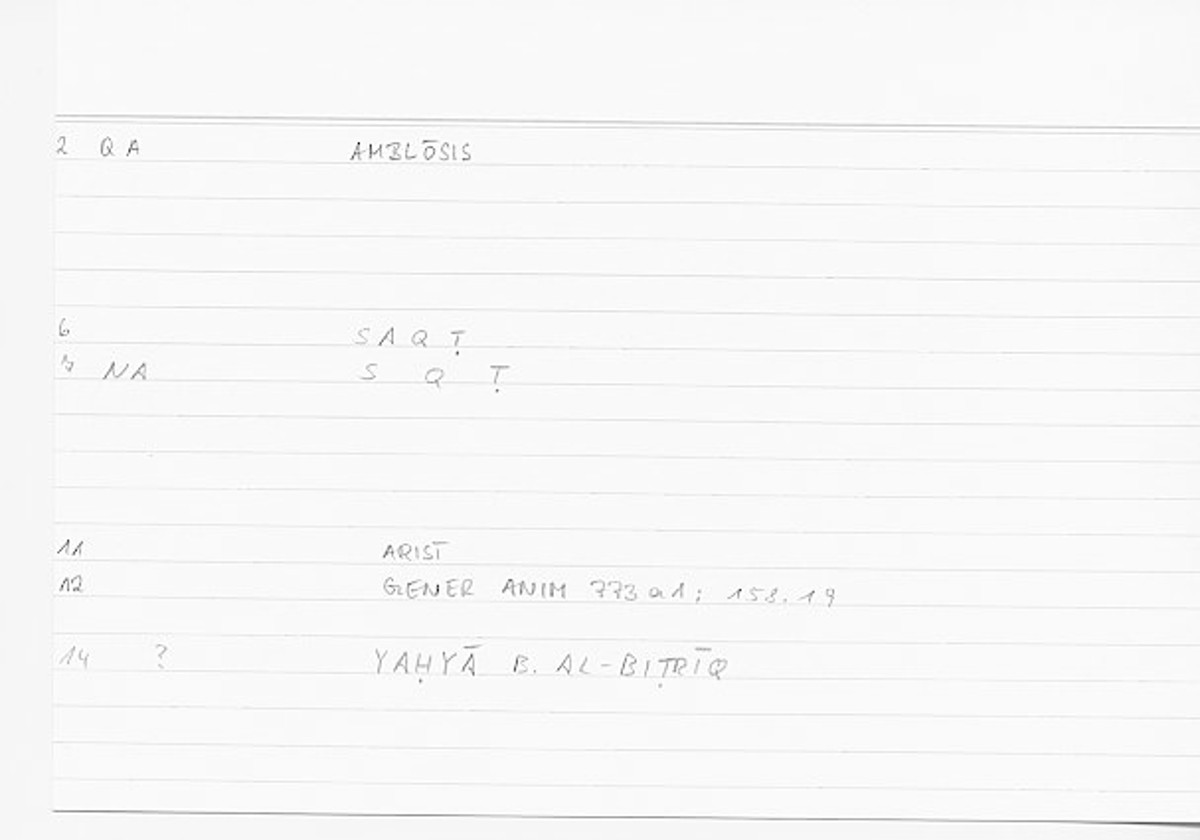 2 Q A AMBLŌSIS
6 S A Q Ṭ
7 NA S Q Ṭ
11 ARIST
12 GENER ANIM 773 a1; 158.19
14 ? YAḤYĀ B. AL-BIṬRĪQ